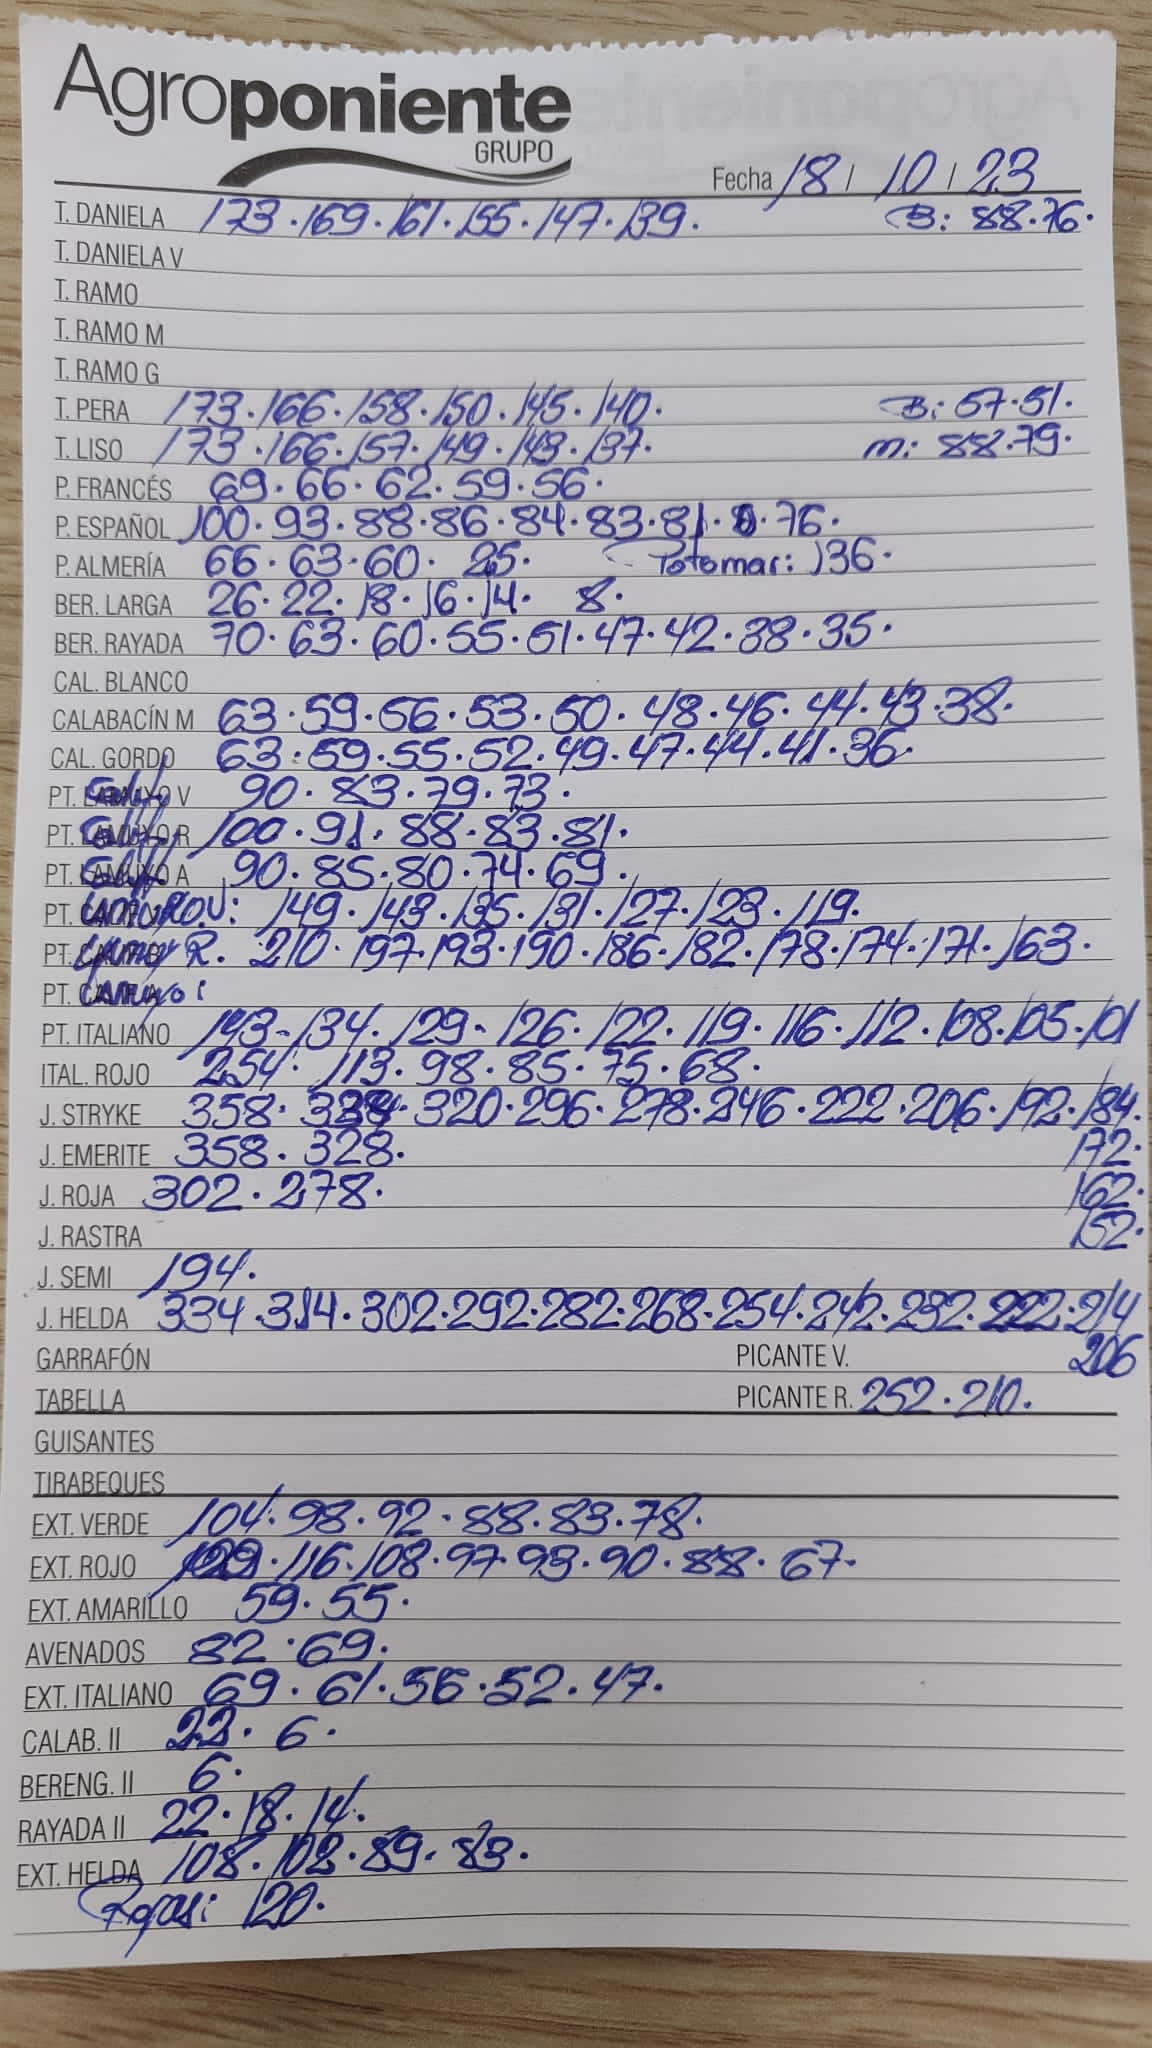 Agroponiente
GRUPO
Fecha 18 / 10 / 23
T. DANIELA 173.169.161.155.147.139. B: 88.76.
T. DANIELA V
T. RAMO
T. RAMO M
T. RAMO G
T. PERA 173.166.158.150.145.140. B: 57.51.
T. LISO 173.166.157.149.143.137. m: 88.79.
P. FRANCÉS 69.66.62.59.56.
P. ESPAÑOL 100.93.88.86.84.83.81. 76.
P. ALMERÍA 66.63.60. 25. Potomar: 136.
BER. LARGA 26.22.18.16.14. 8.
BER. RAYADA 70.63.60.55.51.47.42.38.35.
CAL. BLANCO
CALABACÍN M 63.59.56.53.50.48.46.44.43.38.
CAL. GORDO 63.59.55.52.49.47.44.41.36.
PT. LAMUYO V 90.83.79.73.
PT. LAMUYO R 100.91.88.83.81.
PT. LAMUYO A 90.85.80.74.69.
PT. V: 149.143.135.131.127.123.119.
PT. Lamuyo R. 210.197.193.190.186.182.178.174.171.163.
PT. Lamuyo:
PT. ITALIANO 143-134.129.126.122.119.116.112.108.105.101
ITAL. ROJO 254. 113.98.85.75.68.
J. STRYKE 358. 320.296.278.246.222.206.192.184.
J. EMERITE 358.328. 172.
J. ROJA 302.278. 162.
J. RASTRA 152.
J. SEMI 194.
J. HELDA 334.314.302.292.282.268.254.242.232.222.214
GARRAFÓN PICANTE V. 206
TABELLA PICANTE R. 252.210.
GUISANTES
TIRABEQUES
EXT. VERDE 104.98.92.88.83.78.
EXT. ROJO 116.108.97.93.90.88.67.
EXT. AMARILLO 59.55.
AVENADOS 82.69.
EXT. ITALIANO 69.61.56.52.47.
CALAB. II 22. 6.
BERENG. II 6.
RAYADA II 22.18.14.
EXT. HELDA 108.102.89.83.
Rojas: 120.